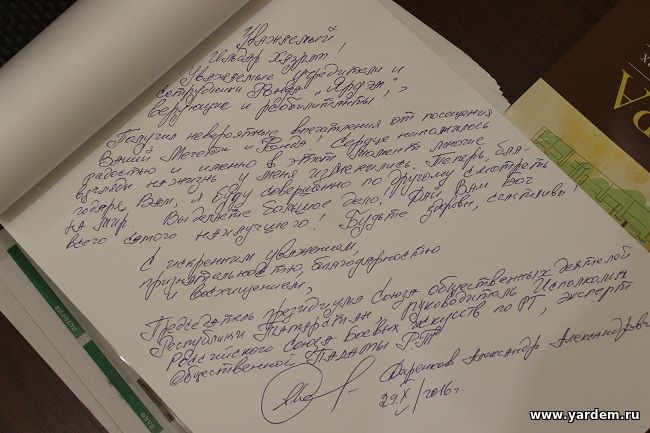 Уважаемый
Ильдар Хазрат!
Уважаемые учредители и
сотрудники Фонда „Ярдэм",
верующие и реабилитанты!
Получил невероятные впечатления от посещения
Вашей Мечети и Фонда. Сердце наполнилось
радостью и именно в этот момент многие
взгляды на жизнь у меня изменились. Теперь, бла-
годаря Вам, я буду совершенно по другому смотреть
на мир. Вы делаете большое дело! Дай Вам Бог
всего самого наилучшего! Будьте здоровы, счастливы!
С искренним уважением,
признательностью, благодарностью
и восхищением,
Председатель президиума Союза общественных деятелей
Республики Татарстан, руководитель Исполкома
Российского союза боевых искусств по РТ, эксперт
Общественной Палаты РТ
Александр Александрович
29.X./2016г.
ИСТОРИЯ
ВАКФ
РА
www.yardem.ru